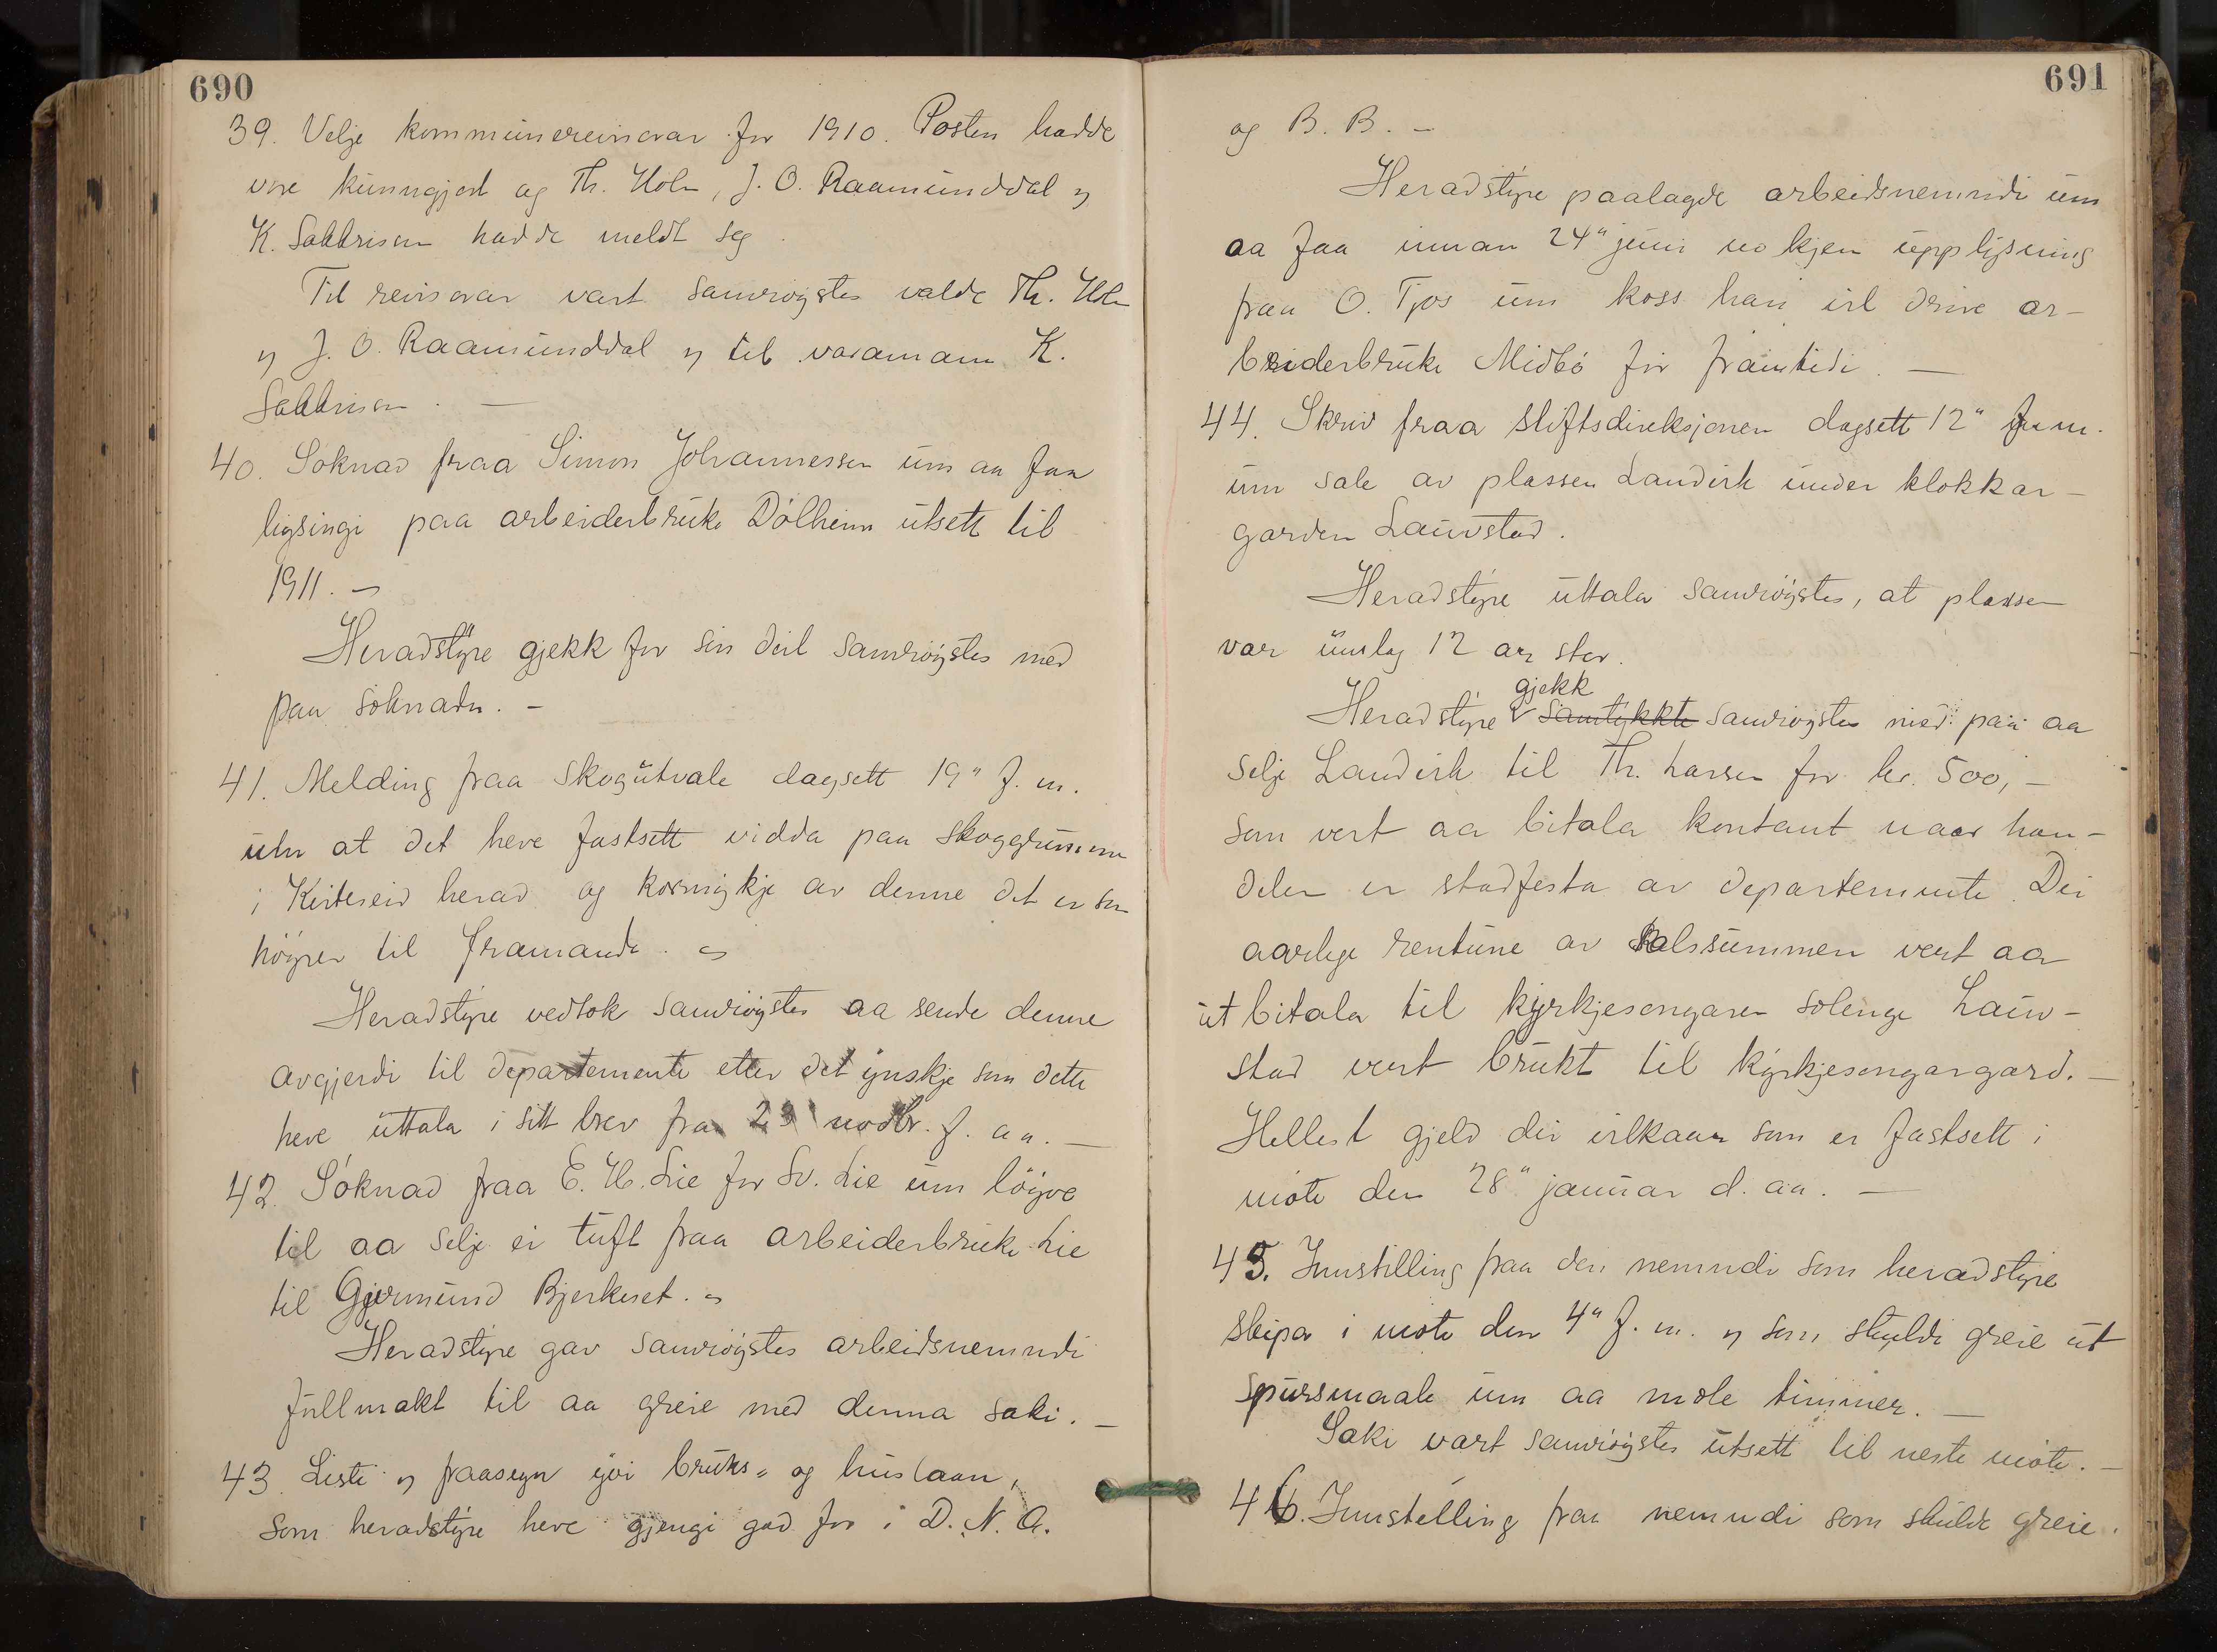 690
39. Velje kommunereviserar for 1910. Posten hadde
vore kunngjord og Th. Holm, J. O. Raamunddal og
K. hadde meldt seg.
Til reviserar vart samröystes valde Th. Holm
og J. O. Raamunddal og til varamann K.

40. Söknad fraa Simon Johannessen um aa faa
lysingi paa arbeiderbruke Dölheim utsett til
1911. –
Heradstyre gjekk for sin deil samröystes med
paa söknadn. –
41. Melding fraa skogutvale dagsett 19" f. m.
um at det heve fastsett vidda paa skoggrunnen
i Kviteseid herad og kormykje av denne det er som
höyrer til framande. –
Heradstyre vedtok samröystes aa sende denne
avgjerdi til departemente etter det ynskje som dette
heve uttala i sitt brev fra 23 novbr. f. aa. –
42. Söknad fraa E. H. Lie for Sv. Lie um löyve
til aa selje ei tuft fraa arbeiderbruke Lie
til Gjermund Bjerkeset. –
Heradstyre gav samröystes arbeidsnemndi
fullmakt til aa greie med denna saki. –
43. Liste og fraasegn yvi bruks- og huslaan,
som heradstyre heve gjengi god for i D. N. A.
691
og B. B. –
Heradstyre paalagde arbeidsnemndi um
aa faa innan 24" juni nokjen upplysning
fraa O. Tjos um koss han vil drive ar-
beiderbruke Midbö for framtidi. –
44. Skriv fraa stiftsdireksjonen dagsett 12" f. m.
um sale av plassen Landvik under klokkar-
garden Lauvstad.
Heradstyre uttala samröystes, at plassen
var umlag 12 ar stor.
gjekk
Heradstyre samtykkte samröystes med paa aa
selje Landvik til Th. Larsen for kr. 500,–
som vert aa bitala kontant naar han-
delen er stadfesta av departemente. Dei
aarlege rentune av salssummen vert aa
utbitala til kyrkjesongaren solenge Lauv-
stad vert brukt til kyrkjesongargard. –
Hellest gjeld dei vilkaar som er fastsett i
möte den 28" januar d. aa. –
45. Innstilling fraa den nemndi som heradstyre
skipa i möte den 4" f. m. og som skulde greie ut
spursmaale um aa mæle timmer. –
Saki vart samröystes utsett til neste möte. –
46. Innstelling fraa nemndi som skulde greie